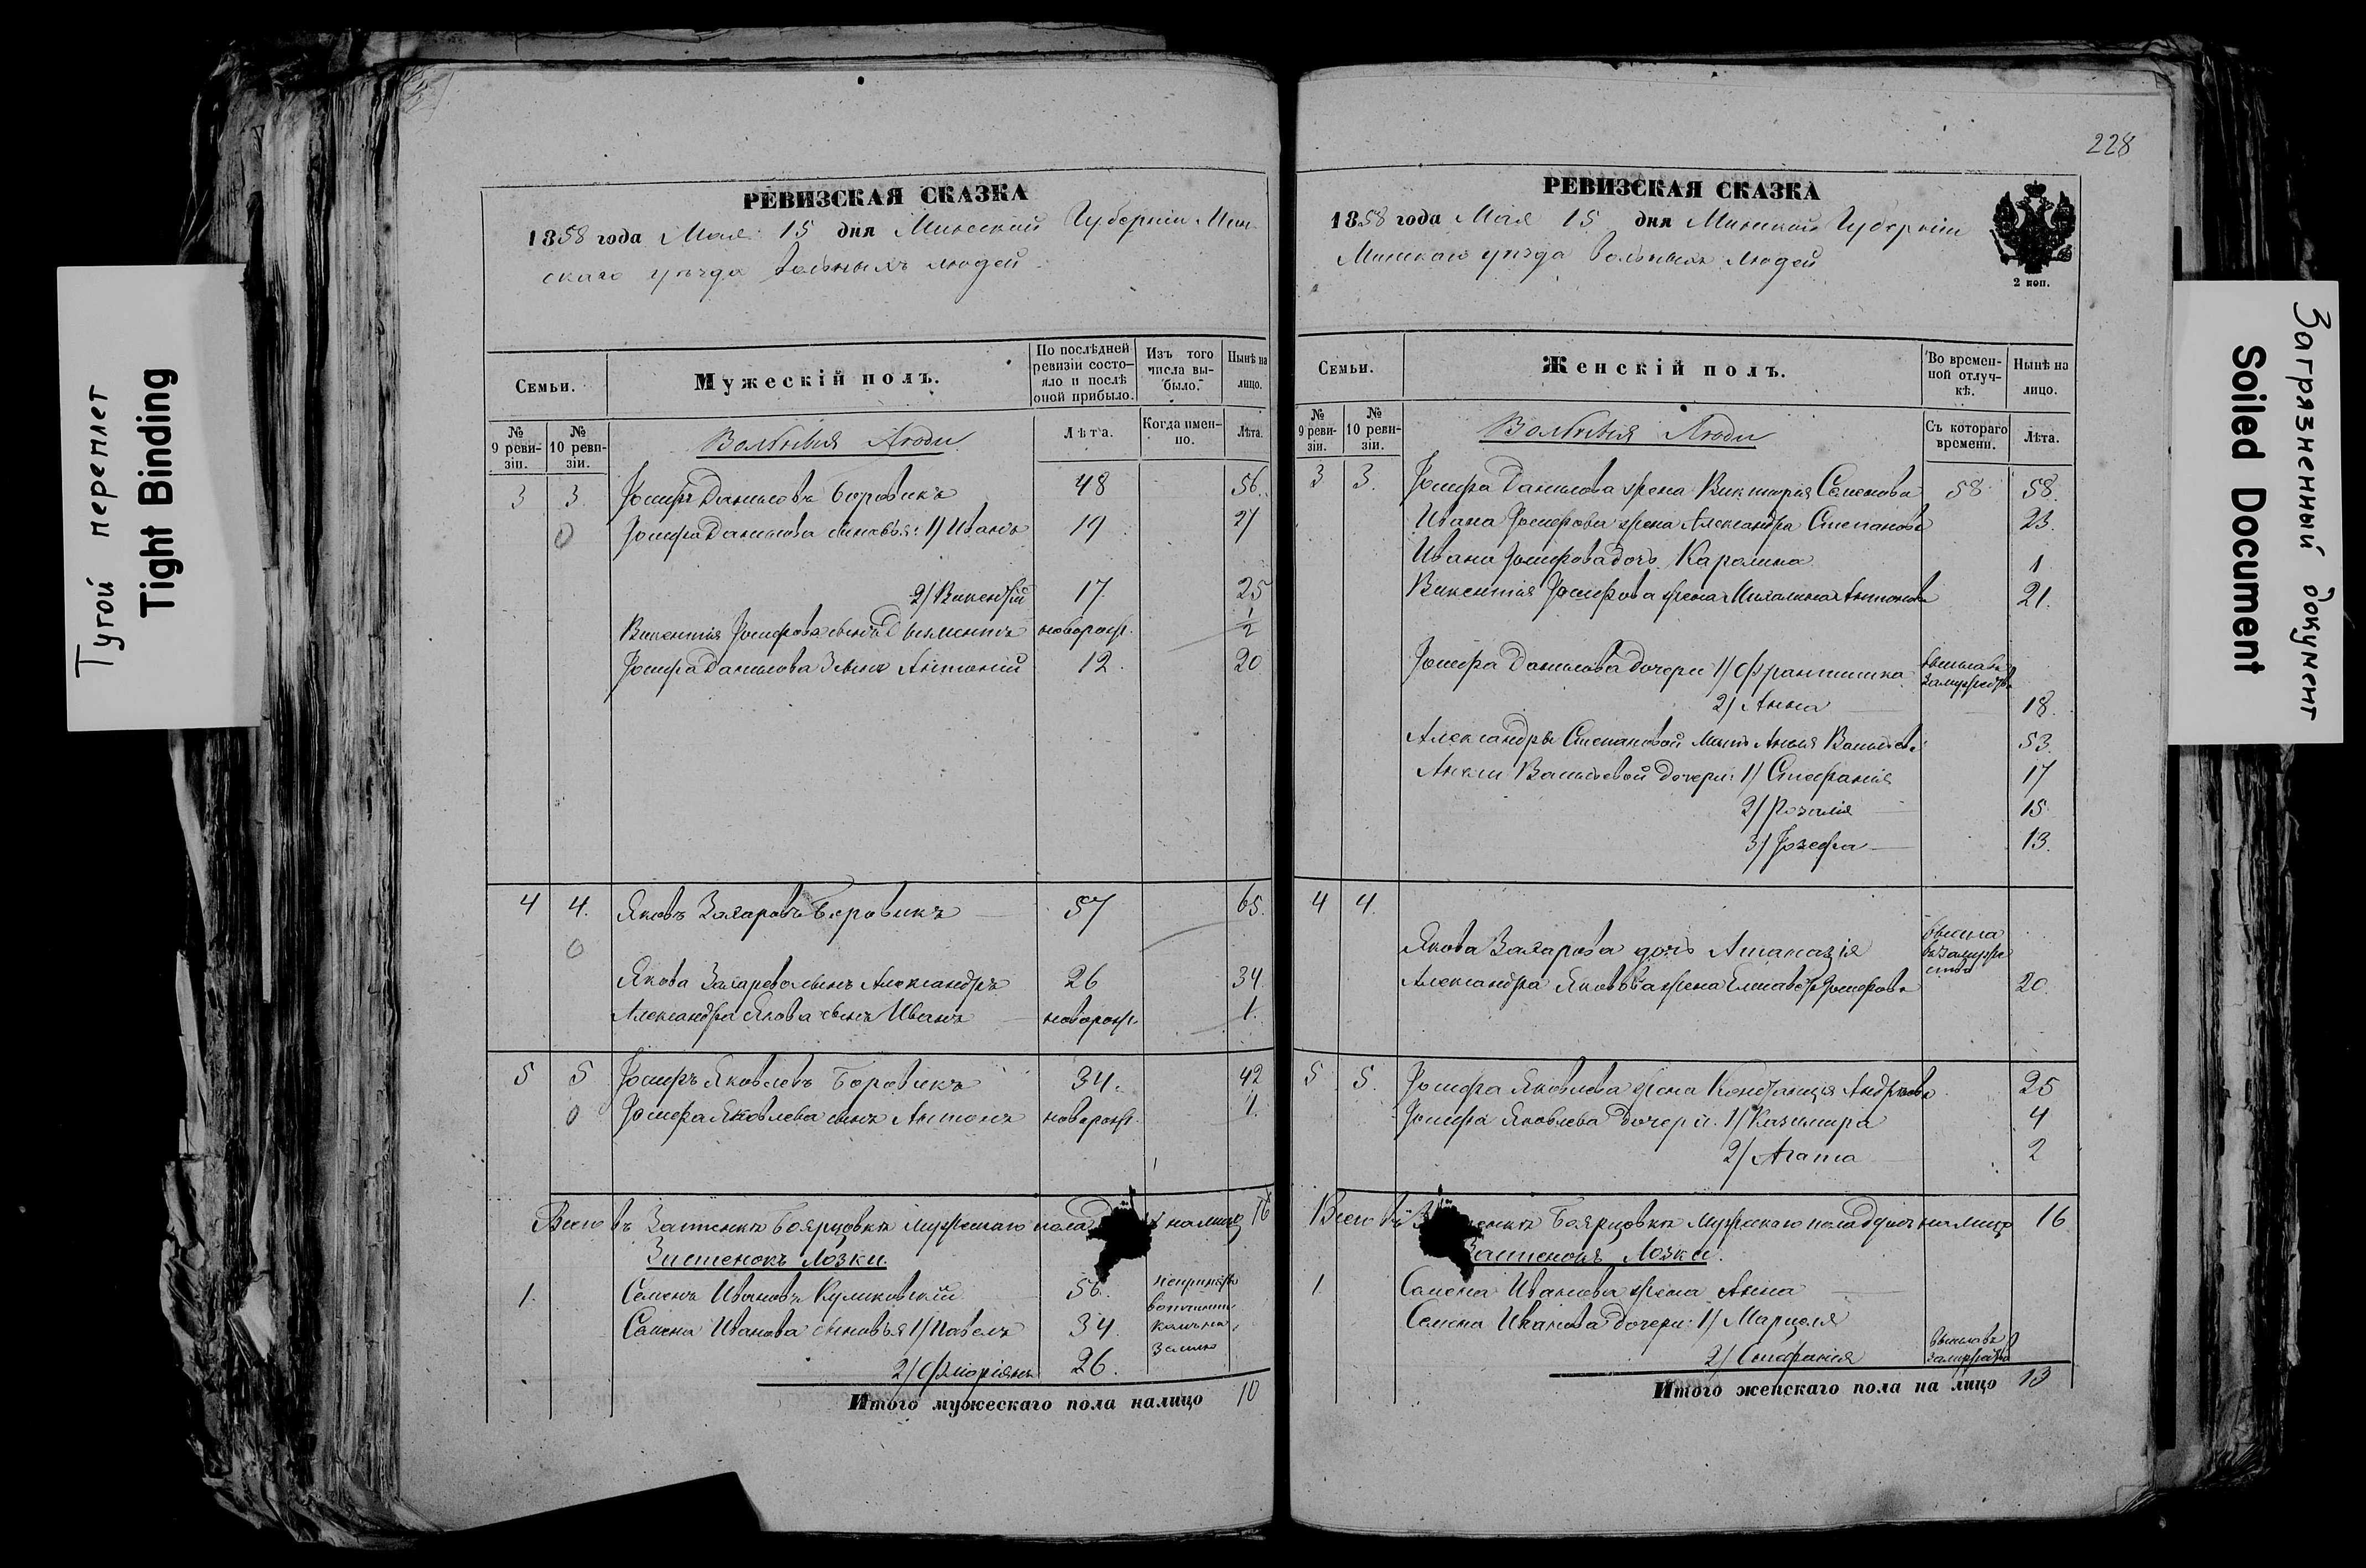 Тугой переплет
Tight Binding
РЕВИЗСКАЯ СКАЗКА
1858 года Мая 15 дня Минской Губерніи Мин-
скаго уѣзда вольныхъ людей
Семьи.
Мужескій полъ.
По послѣдней ревизіи состо-яло и послѣ оной прибыло.
Изъ того числа вы-было.
Нынѣ на лицо.
№ 9 реви-зіи.
№ 10 реви-зіи.
Вольныя Люди
Лѣта.
Когда имен-но.
Лѣта.
3 3 Іосифъ Даниловъ Боровикъ 48 56.
0 Іосифа Данилова сыновья: 1/ Иванъ 19 27
2/ Викентій 17 25
Викентія Іосифова сынъ новорож. 1/2
Іосифа Данилова 3 сынъ Антоній 12. 20
4 4. Яковъ Захаровъ Боровикъ 57 65.
0
Якова Захарова сынъ Александръ 26 34.
Александра Якова сынъ Иванъ новорож. 1.
5 5 Іосифъ Яковлевъ Боровикъ 34. 42
0 Іосифа Яковлева сынъ Антонъ новорож. 1.
Всего въ Застенкѣ Боярщовкѣ мужескаго пола налицо 16
Застенокъ Лозки.
1. Семенъ Ивановъ Куликовскій 56.
Семена Иванова сыновья 1/ Павелъ 34
2/ Флоріянъ 26.
землю
Итого мужескаго пола налицо 10
228
РЕВИЗСКАЯ СКАЗКА
1858 года Мая 15 дня Минской Губерніи
Минскаго уѣзда Вольныхъ людей
2 коп.
Семьи.
Женскій полъ.
Во времен-ной отлуч-кѣ.
Нынѣ на лицо.
№ 9 реви-зіи.
№ 10 реви-зіи.
Вольныя Люди
Съ котораго времени.
Лѣта.
3 3. Іосифа Данилова жена Викторія Семенова 58 58.
Ивана Іосифова жена Александра Степанова 23.
Ивана Іосифова дочь Каролина 1
Викентія Іосифова жена Михалина Антонова 21.
Іосифа Данилова дочери 1/ Франтишка вышла въ замужество
2/ Анна 18.
Александры Степановой мать Анна Васильева 53.
Анны Васильевой дочери: 1/ Стефанія 17
2/ Розалія 15.
3/ Іозефа 13.
4 4.
Якова Захарова дочь Анастазія вышла въ замужество
Александра Яковлева жена Елисавета Іосифова 20.
5 5. Іосифа Яковлева жена Констанція Андреева 25
Іосифа Яковлева дочери: 1/ Казимира 4
2/ Агата 2
Всего въ Боярщовкѣ налицо 16
Застенокъ Лозки.
1 Семена Иванова жена Анна
Семена Иванова дочери: 1/ Марцеля
2/ Стефанія вышла въ замужество
Итого женскаго пола на лицо 13
Загрязненный документ
Soiled Document